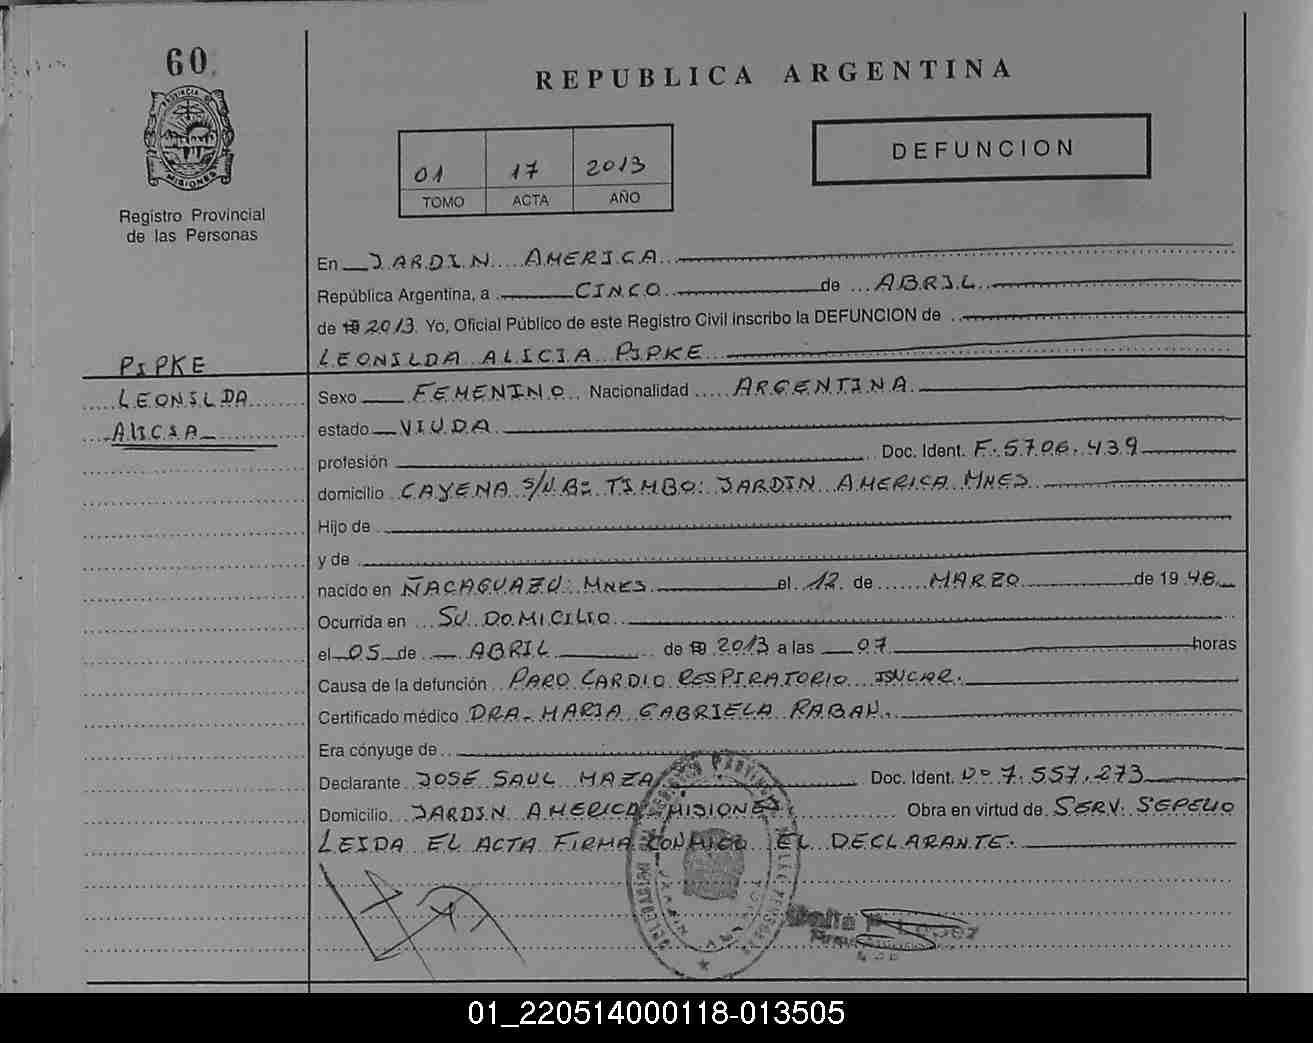 60
PROVINCIA DE
MISIONES
Registro Provincial
de las Personas
REPUBLICA ARGENTINA
01 17 2013
TOMO ACTA AÑO
DEFUNCION
En JARDIN AMERICA
República Argentina, a CINCO de ABRIL
de 19 2013. Yo, Oficial Público de este Registro Civil inscribo la DEFUNCION de
LEONILDA ALICIA PIPKE
PIPKE
LEONILDA
ALICIA
Sexo FEMENINO Nacionalidad ARGENTINA
estado VIUDA
profesión Doc. Ident. F. 5.706.439
domicilio CAYENA S/N Bº TIMBO: JARDIN AMERICA MNES
Hijo de
y de
nacido en ÑACAGUAZU: MNES el 12 de MARZO de 1948
Ocurrida en SU DOMICILIO
el 05 de ABRIL de 19 2013 a las 07 horas
Causa de la defunción PARO CARDIO RESPIRATORIO
Certificado médico DRA- MARIA GABRIELA RABAN.
Era cónyuge de
Declarante JOSE SAUL MAZA Doc. Ident. Dº 7.557.273
Domicilio JARDIN AMERICA MISIONES Obra en virtud de SERV. SEPELIO
LEIDA EL ACTA FIRMA CONMIGO EL DECLARANTE.
01_220514000118-013505